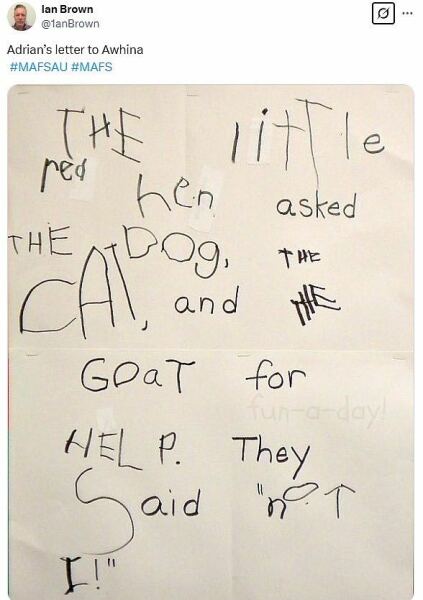 Ian Brown
@1anBrown
Adrian's letter to Awhina
#MAFSAU #MAFS
THE lITTle
red hen asked
THE DOg, THE
CAT, and THE
GOaT for
fun-a-day!
HELP. They
Said "nOT
I!"